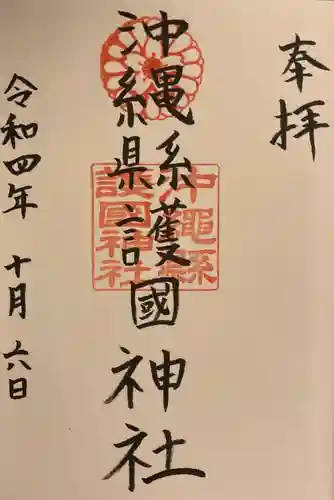 奉拝
沖縄県護國神社
沖縄縣
護國神社
令和四年 十月 六日